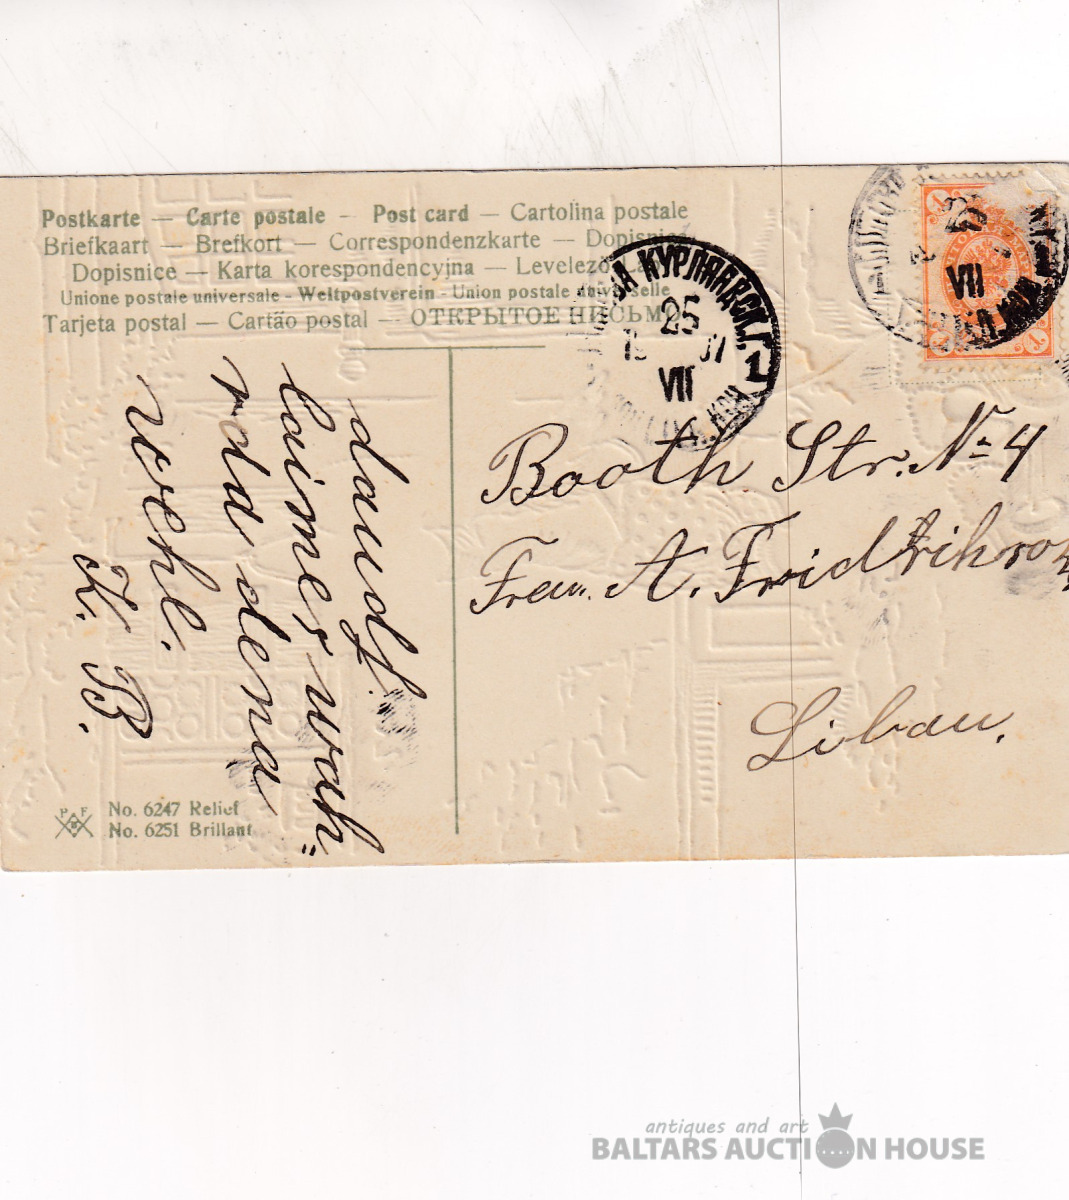 Postkarte — Carte postale — Post card — Cartolina postale
Briefkaart — Brefkort — Correspondenzkarte — Dopisnica
Dopisnice — Karta korespondencyjna — Levelező
Unione postale universale - Weltpostverein - Union postale universelle
Tarjeta postal — Cartão postal — ОТКРЫТОЕ ПИСЬМО
КУРЛЯНДСК. Г.
25
VII
1
VII
Booth Str. № 4
A. Fridrihso
Libau.
daudz
laimes wah=
rda dena
wehl.
K. B.
P F
No. 6247 Relief
No. 6251 Brillant
antiques and art
BALTARS AUCTION HOUSE